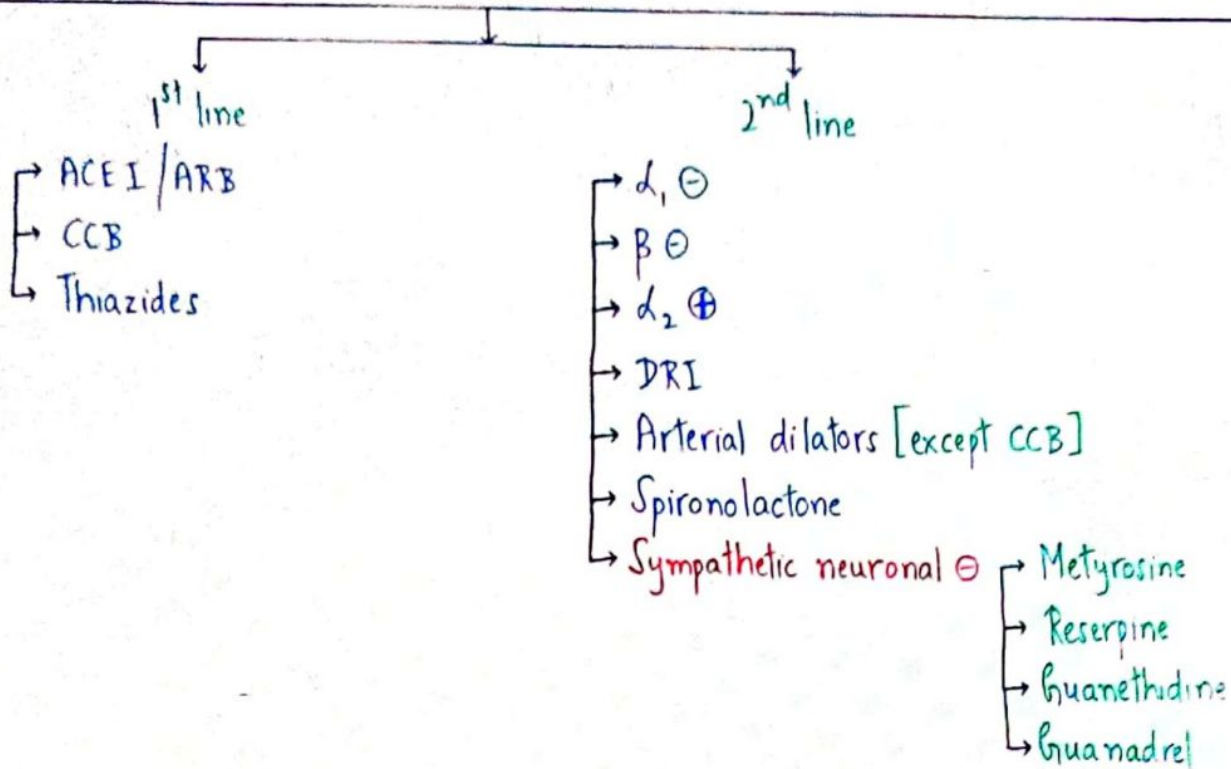 1st line
2nd line
ACE I / ARB
CCB
Thiazides
α1 ⊖
β ⊖
α2 ⊕
DRI
Arterial dilators [except CCB]
Spironolactone
Sympathetic neuronal ⊖
Metyrosine
Reserpine
Guanethidine
Guanadrel